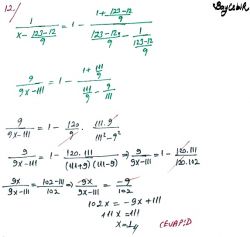 12.)
BayÇabuk
1 / (x - (123-12)/9) = 1 - (1 + (123-12)/9) / ((123-12)/9 - 1/((123-12)/9))
9 / (9x-111) = 1 - (1 + 111/9) / (111/9 - 9/111)
9 / (9x-111) = 1 - 120/9 · 111.9 / (111²-9²)
9 / (9x-111) = 1 - 120.111 / ((111+9)(111-9)) ⇒ 9 / (9x-111) = 1 - 120.111 / 120.102
9x / (9x-111) = (102-111) / 102 ⇒ -9x / (9x-111) = -9 / 102
102x = -9x + 111
111x = 111
x = 1 //
CEVAP:D